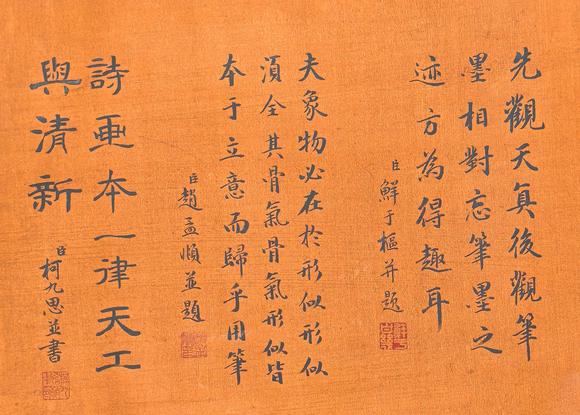 先觀天真後觀筆
墨相對忘筆墨之
迹方為得趣耳
臣鮮于樞并題
夫象物必在於形似形似
須全其骨氣骨氣形似皆
本于立意而歸乎用筆
臣趙孟頫並題
詩畫本一律天工
與清新
臣柯九思並書